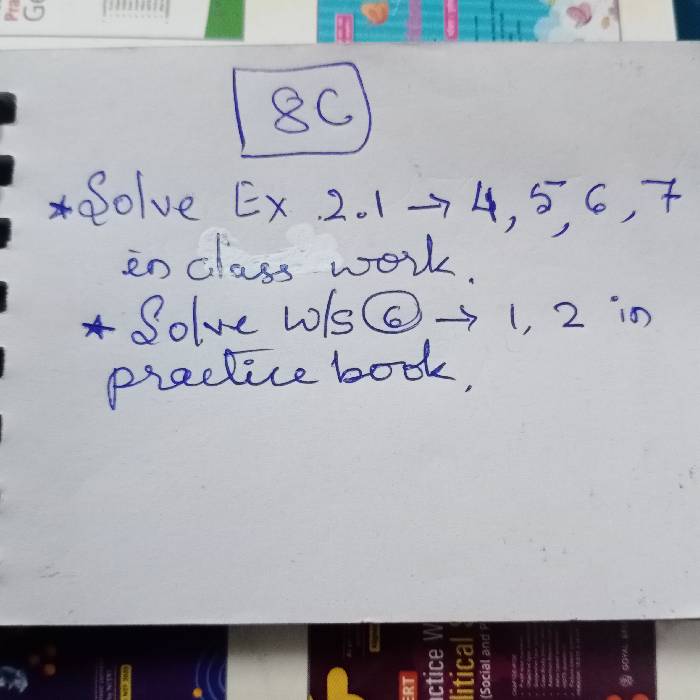 Pra
Ge
8C
* Solve Ex 2.1 → 4, 5, 6, 7
in class work.
* Solve W/S 6 → 1, 2 in
practice book.
ERT
ctice W
litical S
(Social and P
GOYAL